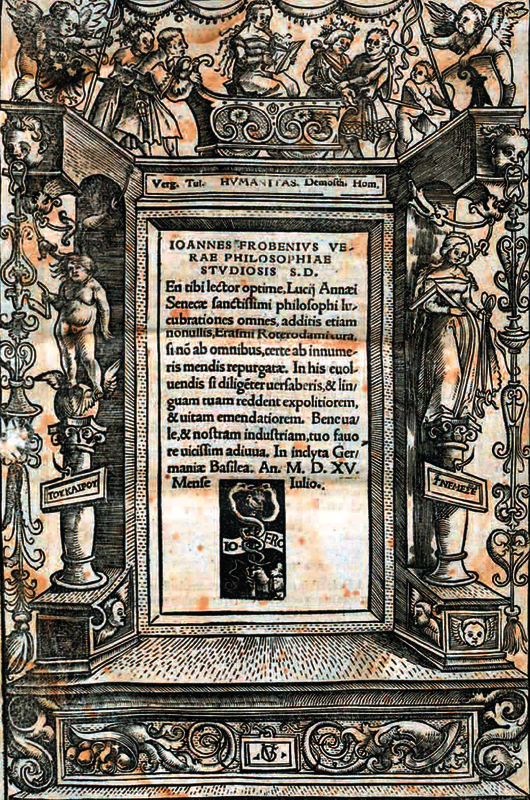 Verg. Tul. HVMANITAS. Demosth. Hom.
IOANNES FROBENIVS VE-
RAE PHILOSOPHIAE
STVDIOSIS S.D.
En tibi lector optime, Lucij Annæi
Senecæ sanctissimi philosophi lu-
cubrationes omnes, additis etiam
nonullis, Erasmi Roterodami cura,
si nõ ab omnibus, certe ab innume-
ris mendis repurgatæ. In his euol-
uendis si diligẽter uersaberis, & lin-
guam tuam reddent expolitiorem,
& uitam emendatiorem. Bene ua-
le, & nostram industriam, tuo fauo
re uicissim adiuua. In inclyta Ger-
maniæ Basilea. An. M. D. XV.
Mense Iulio.
ΤΟΥ ΚΑΙΡΟΥ
IO FRO
VG